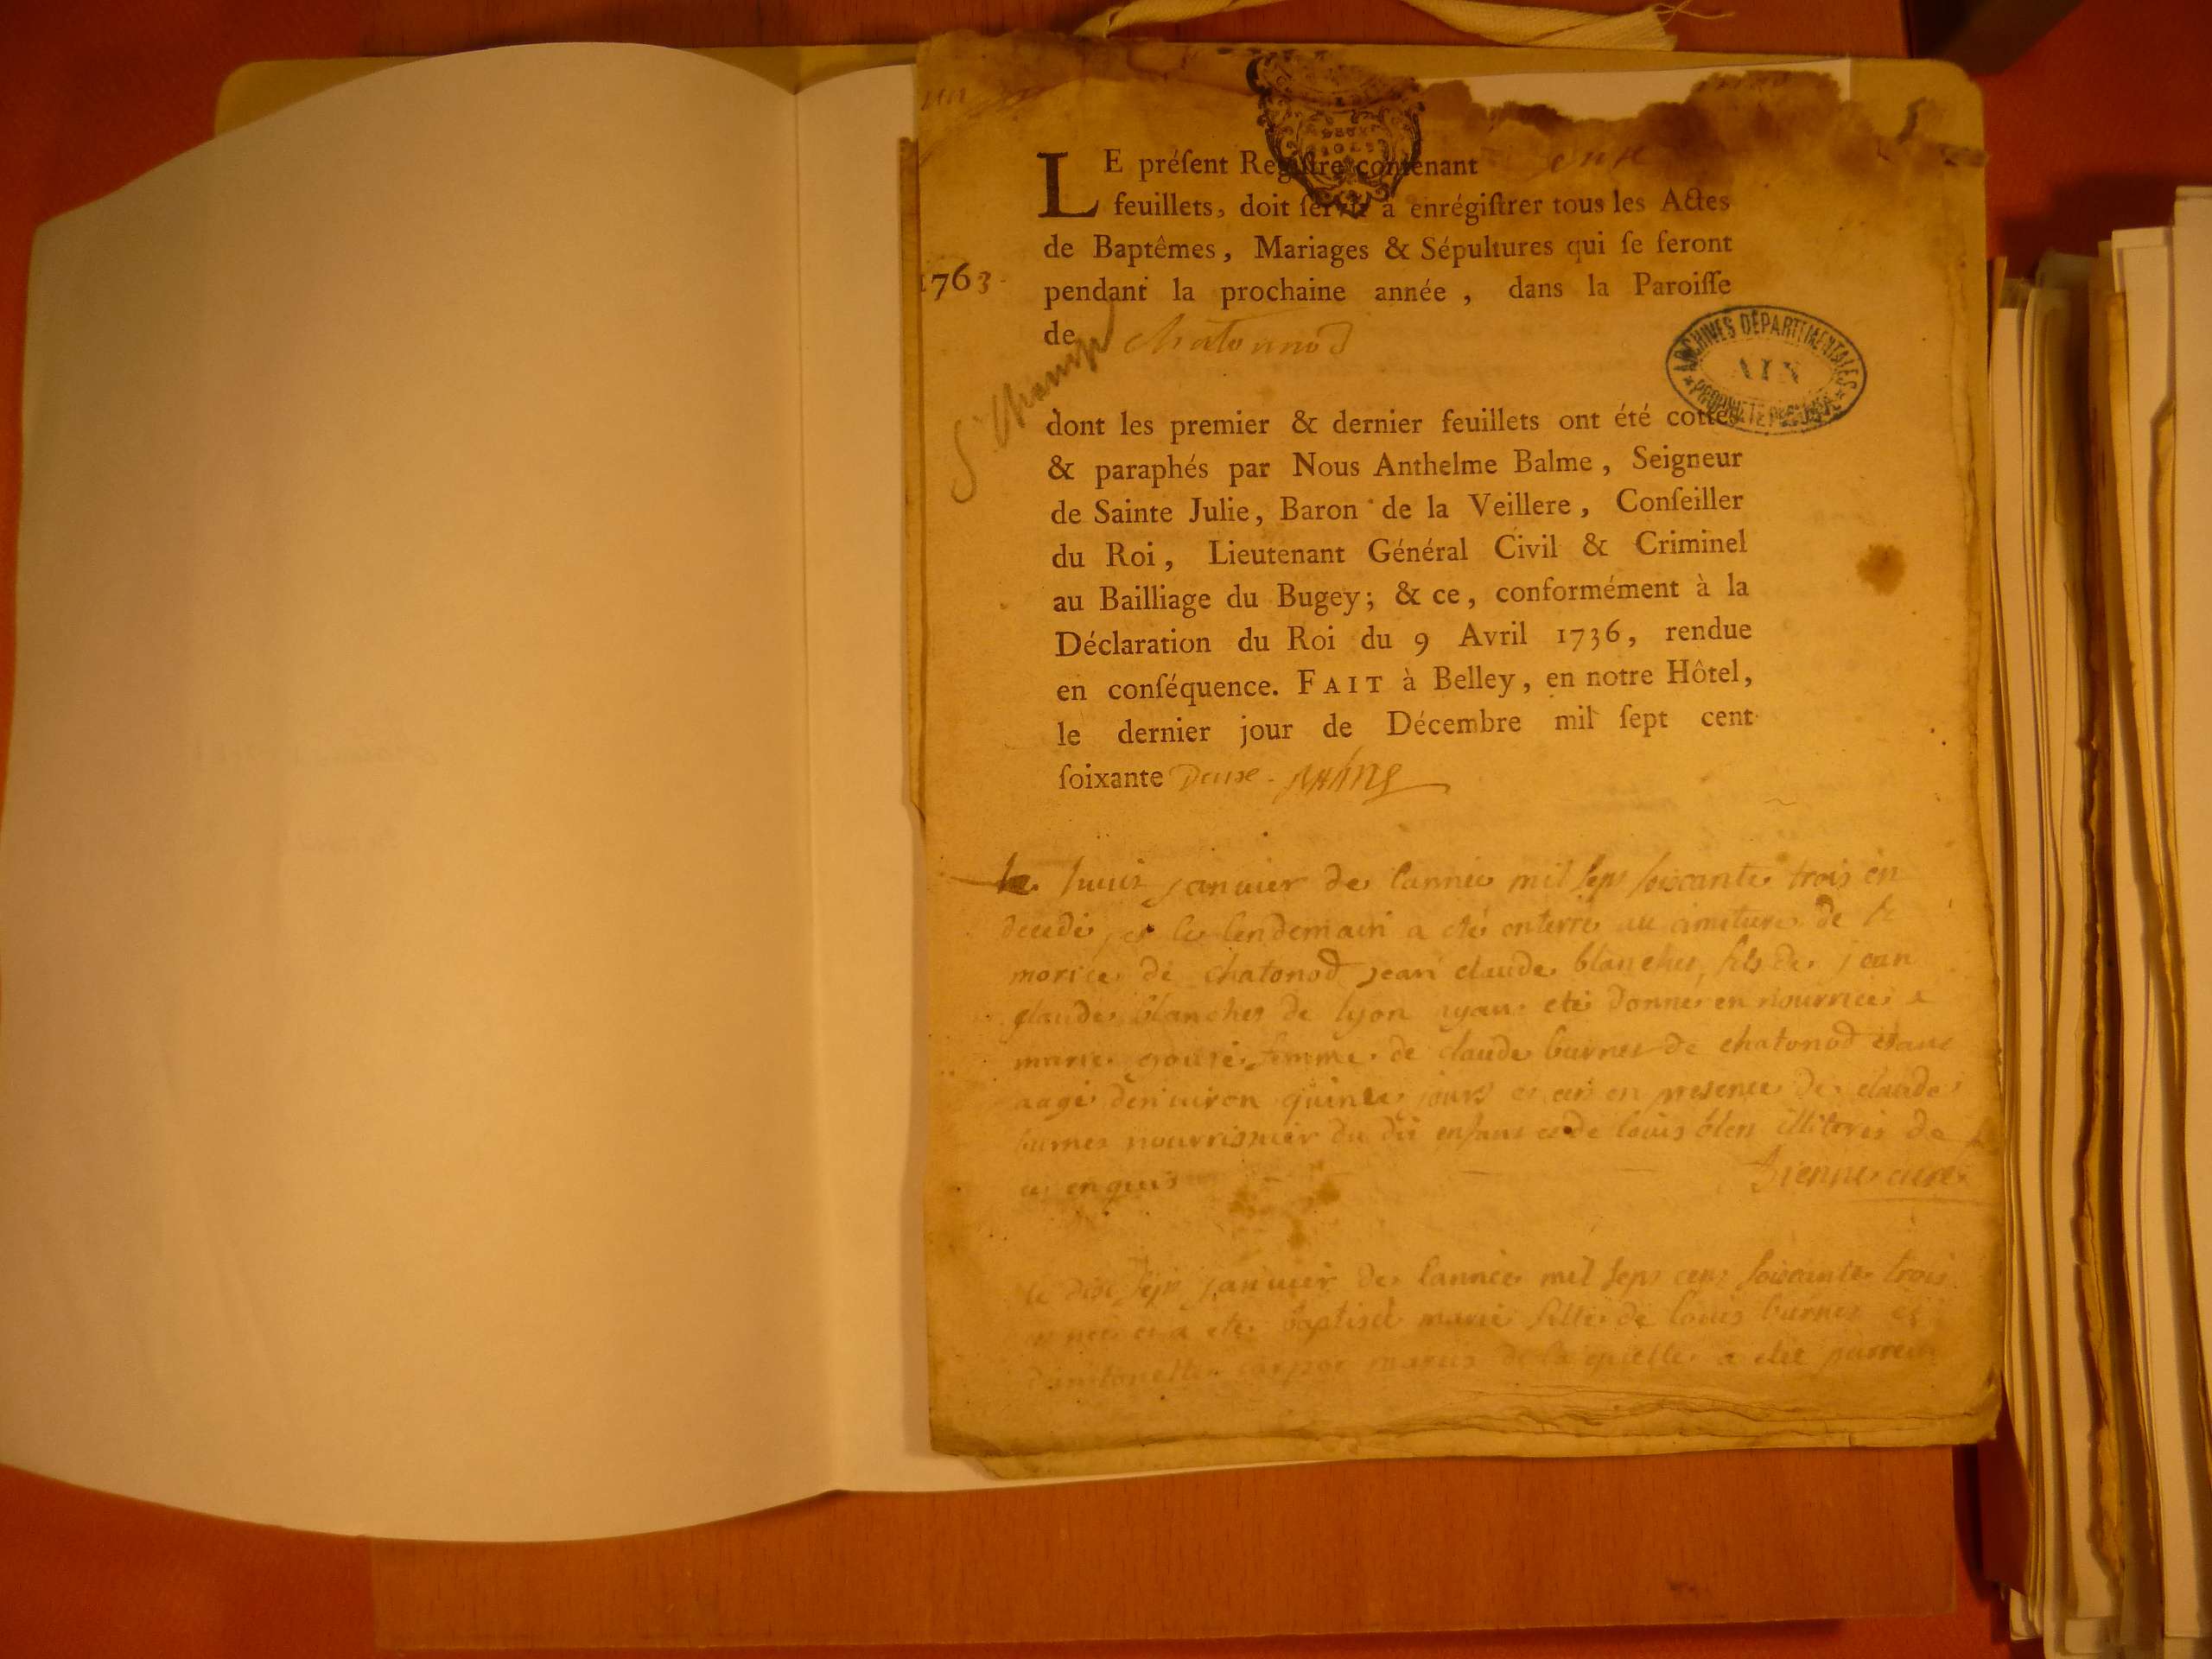 LE préſent Regiſtre contenant
feuillets, doit ſervir à enrégiſtrer tous les Actes
de Baptêmes, Mariages & Sépultures qui ſe feront
1763
pendant la prochaine année, dans la Paroiſſe
de chatonnod
St Champ
ARCHIVES DÉPARTEMENTALES
AIN
dont les premier & dernier feuillets ont été cottés
& paraphés par Nous Anthelme Balme, Seigneur
de Sainte Julie, Baron de la Veillere, Conſeiller
du Roi, Lieutenant Général Civil & Criminel
au Bailliage du Bugey; & ce, conformément à la
Déclaration du Roi du 9 Avril 1736, rendue
en conſéquence. FAIT à Belley, en notre Hôtel,
le dernier jour de Décembre mil ſept cent
ſoixante Deuxe
janvier de lannee mil sept soixante trois en
decede et le lendemain a eté enterré au cimeture de st
morice de chatonod jean claude blanchet fils de jean
claude blanchet de lyon ayant eté donné en nourrice a
marie femme de claude burnet de chatonod etant
aagé denviron quinze jours et ce en presence de claude
burnet nourrissier du dit enfant et de louis illiteres de
ce enquis
curé
le dix sept janvier de lannee mil sept cent soixante trois
et a eté baptisée marie fille de louis burnet et
de laquelle a eté